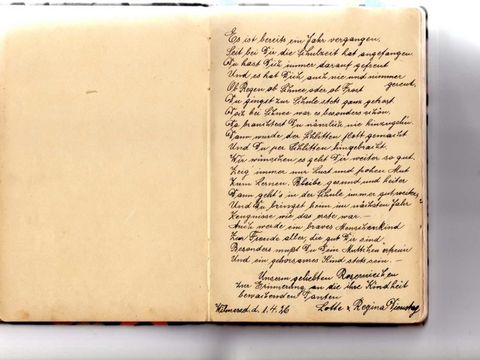 Es ist bereits ein Jahr vergangen,
Seit bei Dir die Schulzeit hat angefangen.
Du hast Dich immer darauf gefreut
Und es hat Dich auch nie und nimmer gereut.
Ob Regen ob Schnee, oder ob Frost
Du gingst zur Schule stets ganz getrost.
Weit bei Schnee war es besonders schön,
Da brauchtest Du nämlich nie hinzugehn.
Dann wurde der Schlitten flott gemacht
Und Du per Schlitten hingebracht.
Wir wünschen es geht Dir weiter so gut,
Zeig immer nur Lust und frohen Mut
Zum Lernen. Bleibe gesund und heiter
Dann geht's in der Schule immer gut weiter,
Und Du bringst beim im nächsten Jahr
Zeugnisse wie das erste war. —
Auch werde ein braves Menschenkind
Zur Freude aller, die gut Dir sind.
Besonders mußt Du Dein Muttchen erfreun
Und ein gehorsames Kind stets sein. —
Unserm geliebten
zur Erinnerung an die ihre Kindheit
bewachenden Tanten
Lotte & Regina
d. 1.4.26